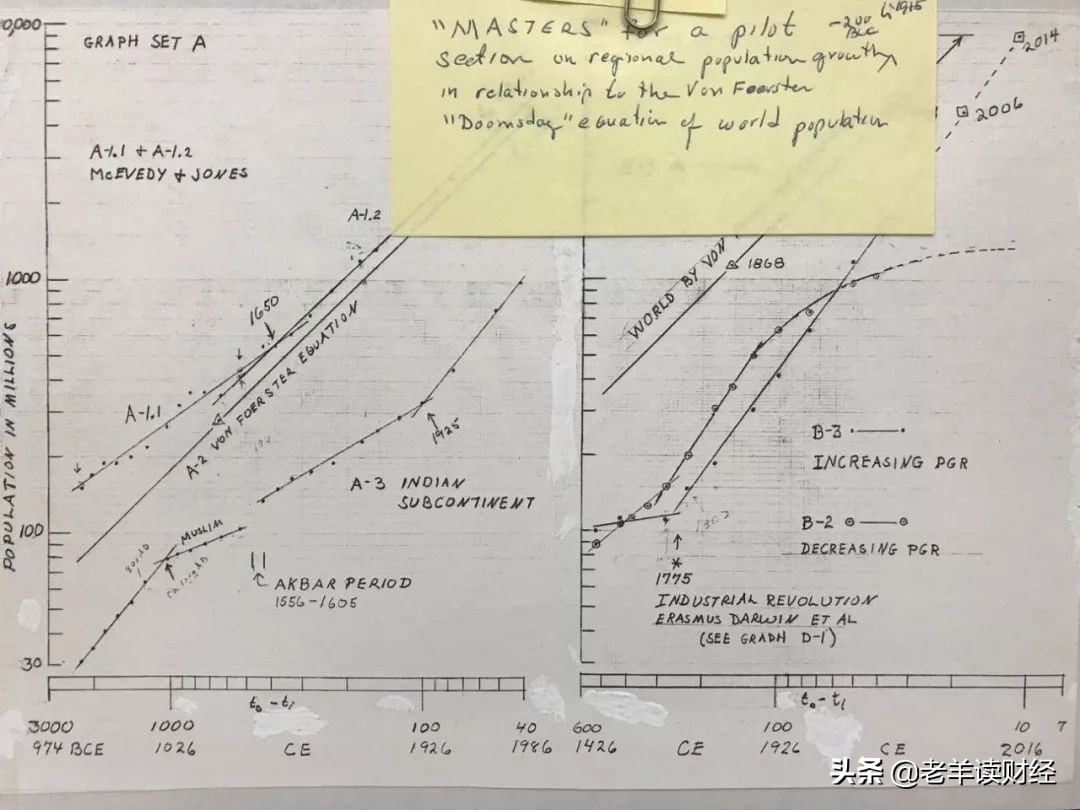 "MASTERS" for a pilot
section on regional population growth
in relationship to the Von Foerster
"Doomsday" equation of world population
-200
BCE
1915
0,000
GRAPH SET A
A-1.1 + A-1.2
McEVEDY & JONES
A-1.2
1000
1650
A-1.1
A-2 VON FOERSTER EQUATION
1925
A-3 INDIAN
SUBCONTINENT
100
MUSLIM
AKBAR PERIOD
1556-1605
30
POPULATION IN MILLIONS
t₀-t₁
3000
1000
100
40
974 BCE
1026
CE
1926
1986
2014
2006
WORLD BY VON
1868
B-3
INCREASING PGR
B-2
DECREASING PGR
*
1775
INDUSTRIAL REVOLUTION
ERASMUS DARWIN ET AL
(SEE GRAPH D-1)
t₀-t₁
600
100
10
7
1426
CE
1926
CE
2016
头条 @老羊读财经